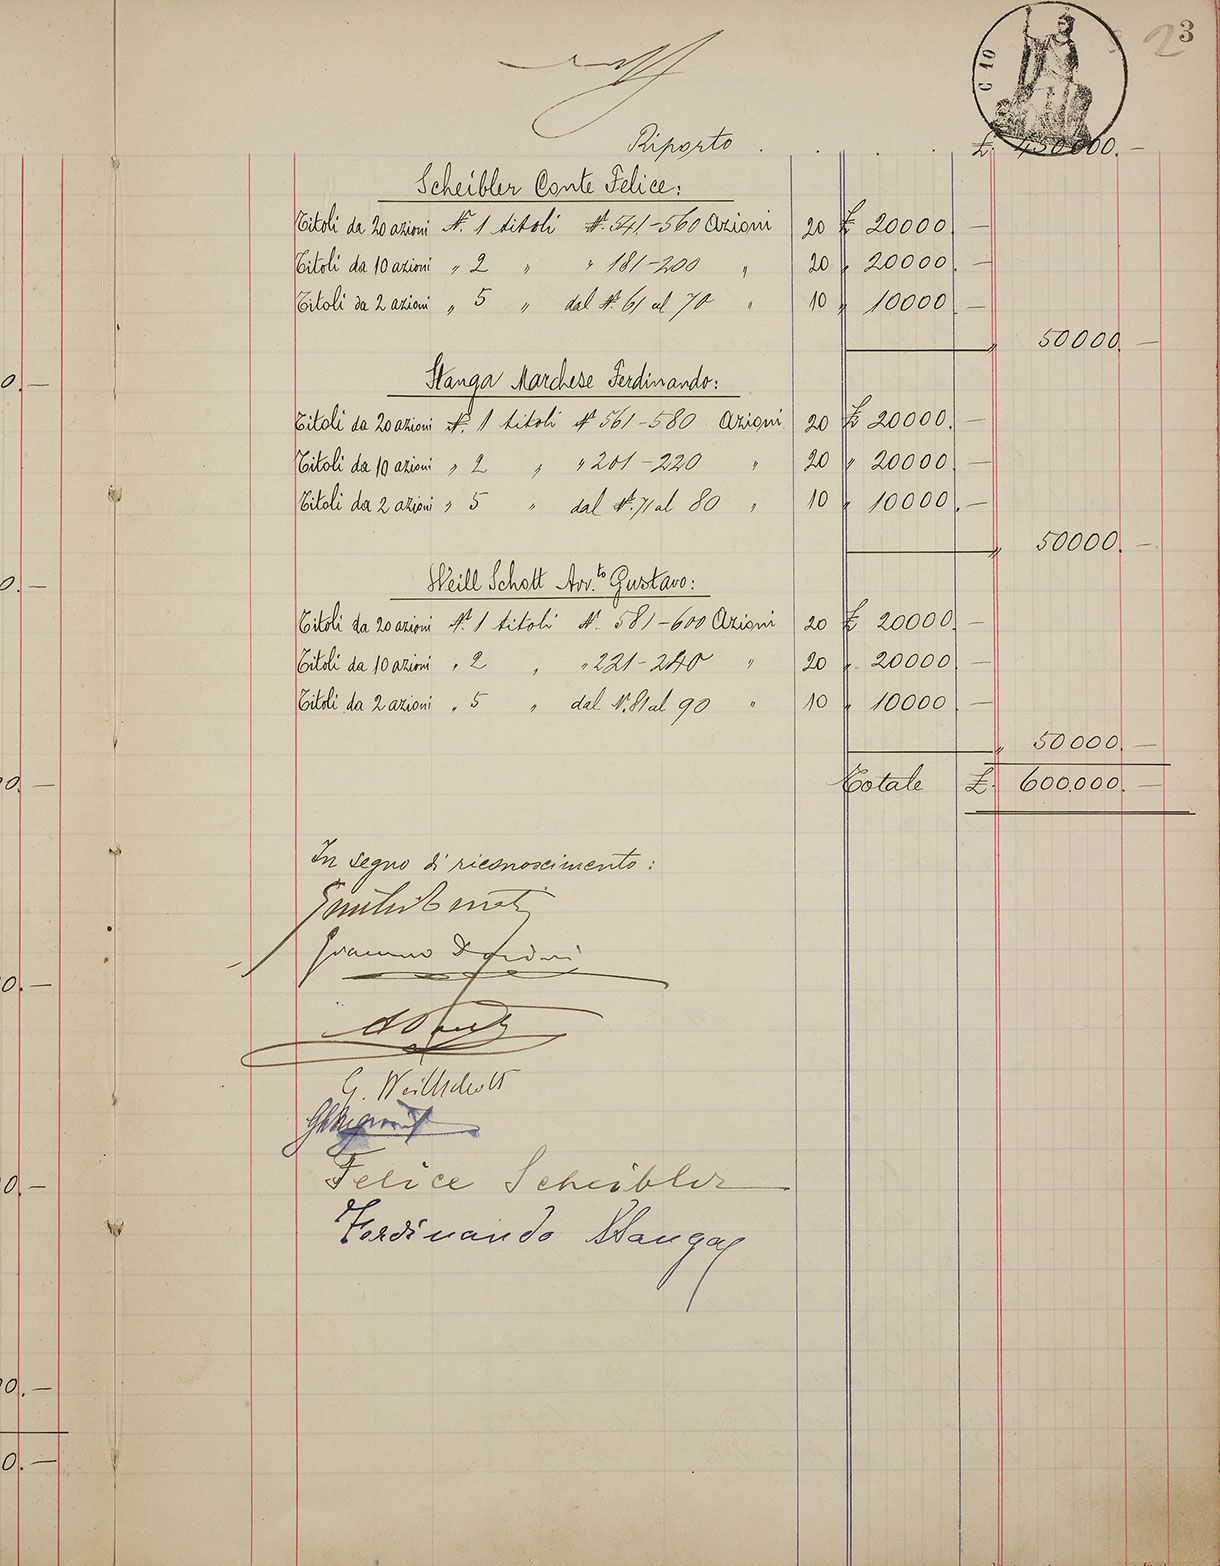 C 10
23
Riporto . . . . £. 450000. —
Scheibler Conte Felice:
Titoli da 20 azioni N. 1 titoli N. 541-560 Azioni 20 £ 20000. —
Titoli da 10 azioni " 2 " " 181-200 " 20 " 20000. —
Titoli da 2 azioni " 5 " dal N. 61 al 70 " 10 " 10000. —
" 50000. —
Stanga Marchese Ferdinando:
Titoli da 20 azioni N. 1 titoli N 561-580 Azioni 20 £ 20000. —
Titoli da 10 azioni " 2 " " 201-220 " 20 " 20000. —
Titoli da 2 azioni " 5 " dal N. 71 al 80 " 10 " 10000. —
" 50000. —
Weill Schott Avv.to Gustavo:
Titoli da 20 azioni N. 1 titoli N. 581-600 Azioni 20 £ 20000. —
Titoli da 10 azioni " 2 " " 221-240 " 20 " 20000. —
Titoli da 2 azioni " 5 " dal N. 81 al 90 " 10 " 10000. —
" 50000. —
Totale £. 600.000. —
In segno di riconoscimento:
G. Weillschott
Felice Scheibler
Ferdinando Stanga
0. —
0. —
0. —
0. —
0. —
0. —
0. —